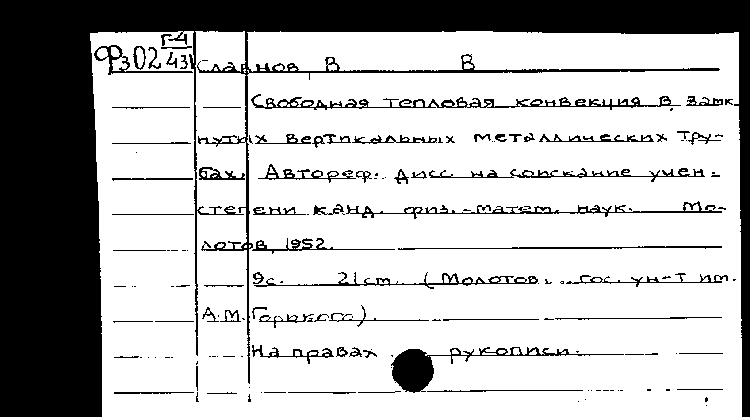 Г-4
Фз02/431
Славнов В В
Свободная тепловая конвекция в замк
нутых вертикальных металлических тру-
бах. Автореф. дисс. на соискание учен.
степени канд. физ.-матем. наук. Мо-
лотов, 1952.
9с. 21см. (Молотов. гос. ун-т им.
А.М.Горького).
На правах рукописи.